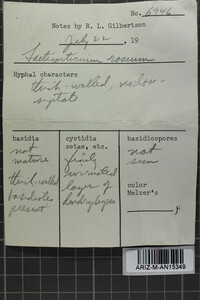 No. 6946
Notes by R. L. Gilbertson
July 22, 19
Laeticorticium roseum
Hyphal characters
thin-walled, nodose-
septate
basidia
not
mature
thick-walled
basidioles
present
cystidia
setae, etc.
finely
layer of
dendrohyphae
basidiospores
not
seen
color
Melzer's
μ
ARIZ-M-AN15349